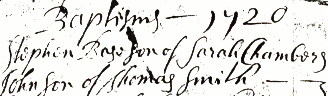 Baptisms — 1720
Stephen Base son of Sarah Chambers
John son of Thomas Smith —